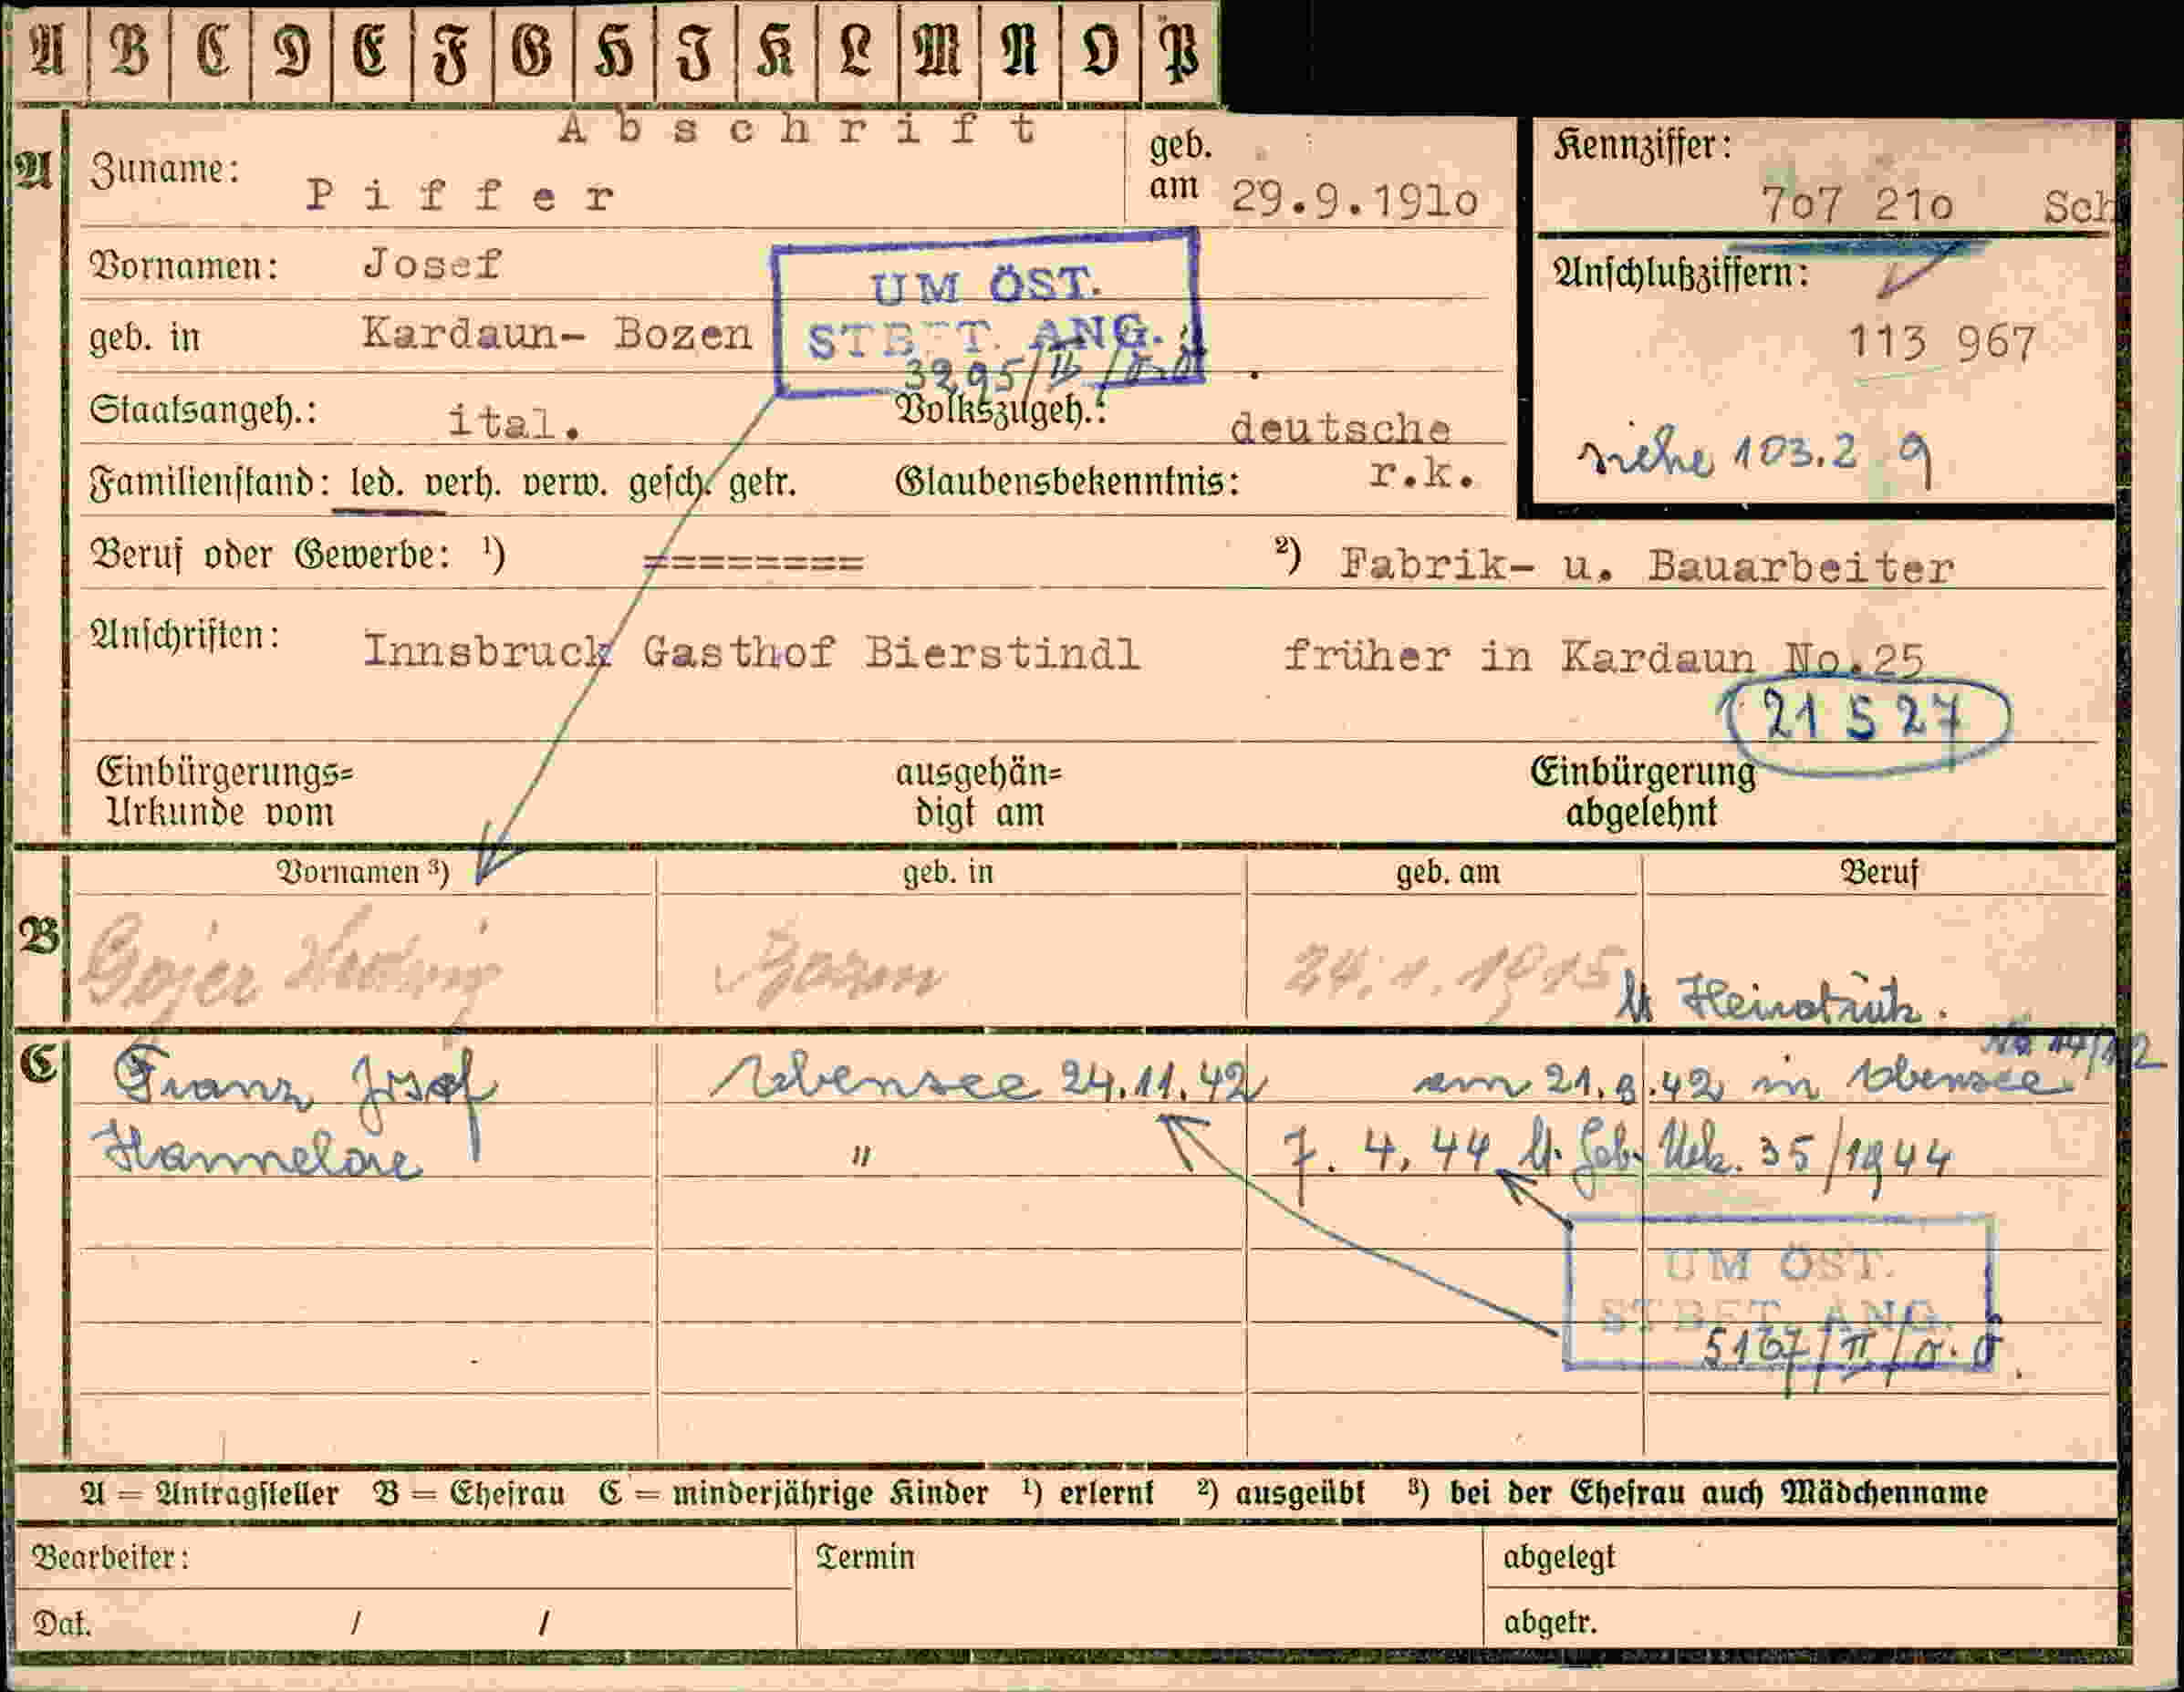 A B C D E F G H I K L M N O P
Abschrift
A
Zuname: Piffer
geb. am 29.9.191o
Kennziffer:
7o7 21o Sch
Vornamen: Josef
UM ÖST.
STBFT. ANG.
3295/II/
Anschlußziffern:
113 967
geb. in Kardaun- Bozen
Staatsangeh.: ital. Volkszugeh.: deutsche
siehe 103.2 9
Familienstand: led. verh. verw. gesch. getr. Glaubensbekenntnis: r.k.
Beruf oder Gewerbe: ¹) ======== ²) Fabrik- u. Bauarbeiter
Anschriften: Innsbruck Gasthof Bierstindl früher in Kardaun No.25
21527
Einbürgerungs=
Urkunde vom
ausgehän=
digt am
Einbürgerung
abgelehnt
Vornamen ³) geb. in geb. am Beruf
B
Gojer Hedwig Bozen 24.1.1915
lt Heiratsurk.
14/42
C
Franz Josef Ebensee 24.11.42 am 21.8.42 in Ebensee
Hannelore " 7.4.44 lt. Geb. Urk. 35/1944
UM ÖST.
STBFT. ANG.
5167/II/
A = Antragsteller B = Ehefrau C = minderjährige Kinder ¹) erlernt ²) ausgeübt ³) bei der Ehefrau auch Mädchenname
Bearbeiter: Termin abgelegt
Dat. / / abgetr.